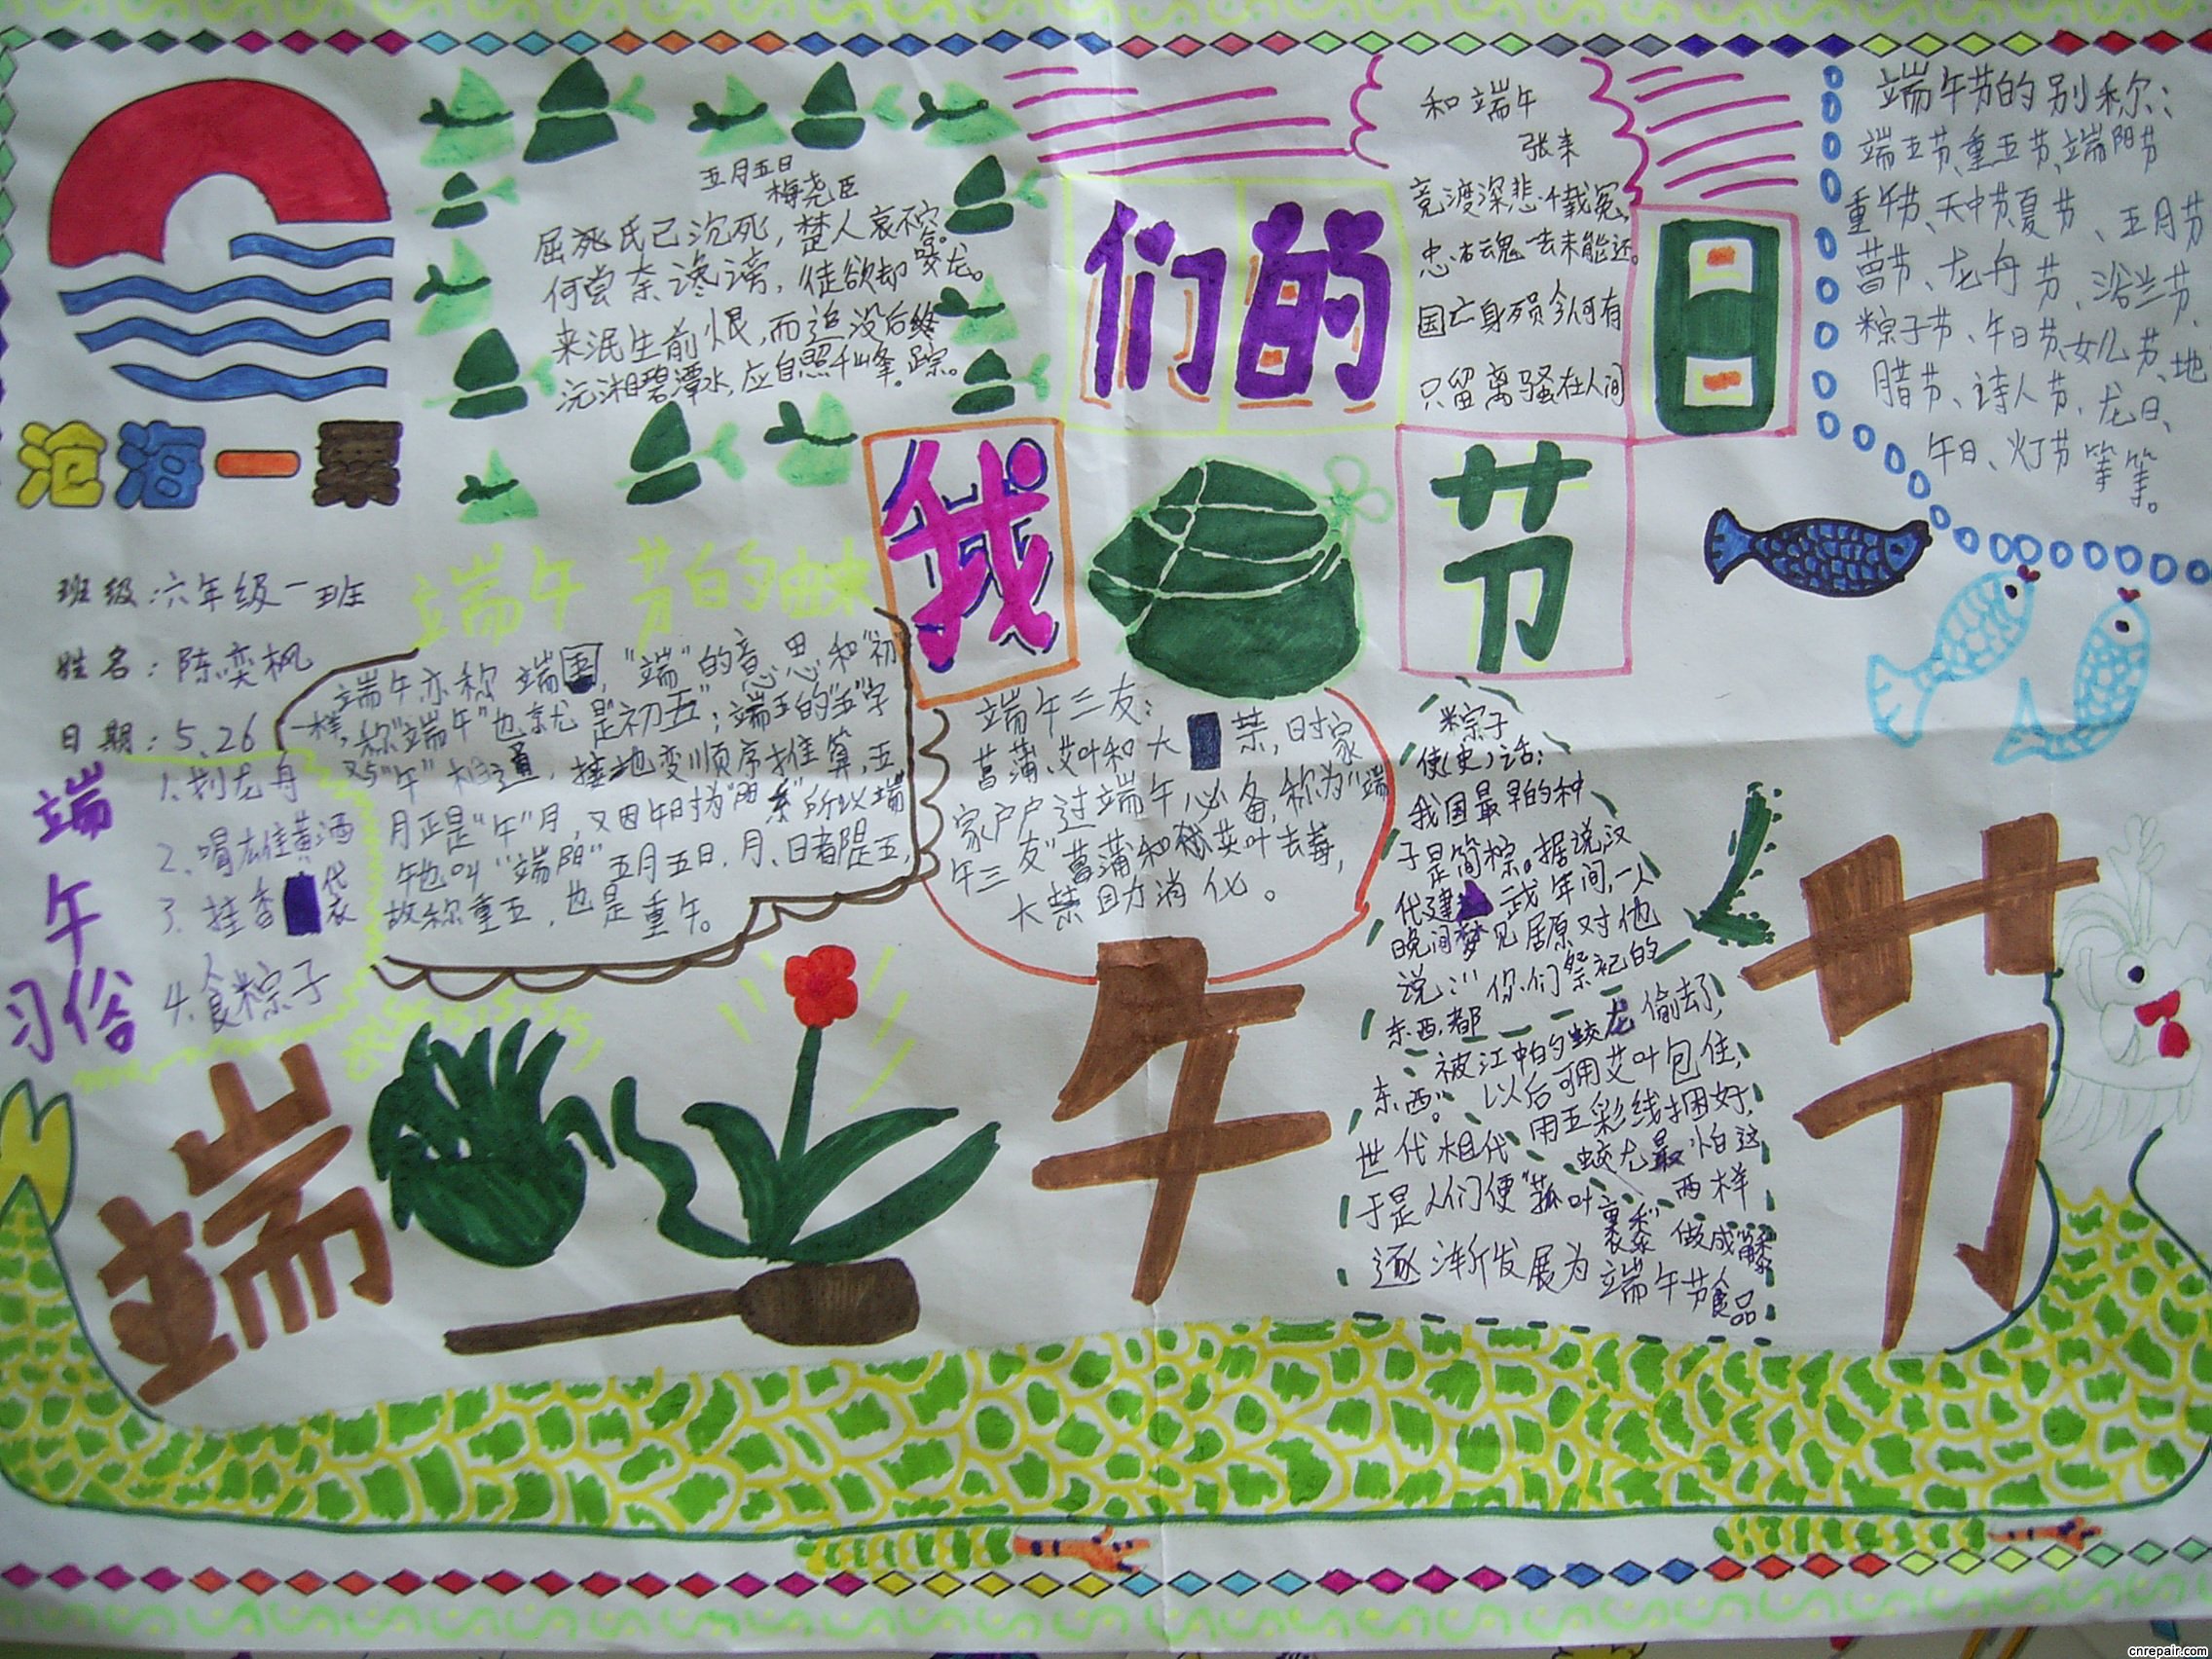 沧海一粟
班级:六年级一班
姓名:陈奕枫
日期:5、26
五月五日
梅尧臣
屈死氏已沉死,楚人哀不容。
何尝奈谗谤,徒欲却蛟龙。
来泯生前恨,而追没后踪。
沅湘碧潭水,应自照千峰。
我们的节日
和端午
张耒
竞渡深悲千载冤,
忠魂一去未能还。
国亡身殒今何有
只留离骚在人间
端午节的别称:
端五节、重五节、端阳节
重午节、天中节、夏节、五月节
菖节、龙舟节、浴兰节、
粽子节、午日节、女儿节、地
腊节、诗人节、龙日、
午日、灯节等等。
端午节的由来
端午亦称端五,"端"的意思和"初"
一样,称"端午"也就是初五";端五的"五"字
又与"午"相通,按地支顺序推算,五
月正是"午"月,又因午时为"阳辰"所以端
午也叫"端阳"五月五日,月、日都是五,
故称重五,也是重午。
端午习俗
1.划龙舟
2.喝雄黄酒
3.挂香袋
4.食粽子
端午三友:
菖蒲、艾叶和大蒜,旧时家
家户户过端午必备,称为"端
午三友"菖蒲和艾叶去莓,
大蒜助消化。
粽子
使(史)话:
我国最早的种
子是简粽。据说汉
代建武年间,一人
晚间梦见屈原对他
说:"你们祭祀的
东西,都
被江中的蛟龙偷去了,
以后可用艾叶包住,
东西。"
用五彩线捆好,
蛟龙最怕这
两样
世代相代
于是人们便"菰叶裹黍"做成
逐渐发展为端午节食品
端午节
cnrepair.com